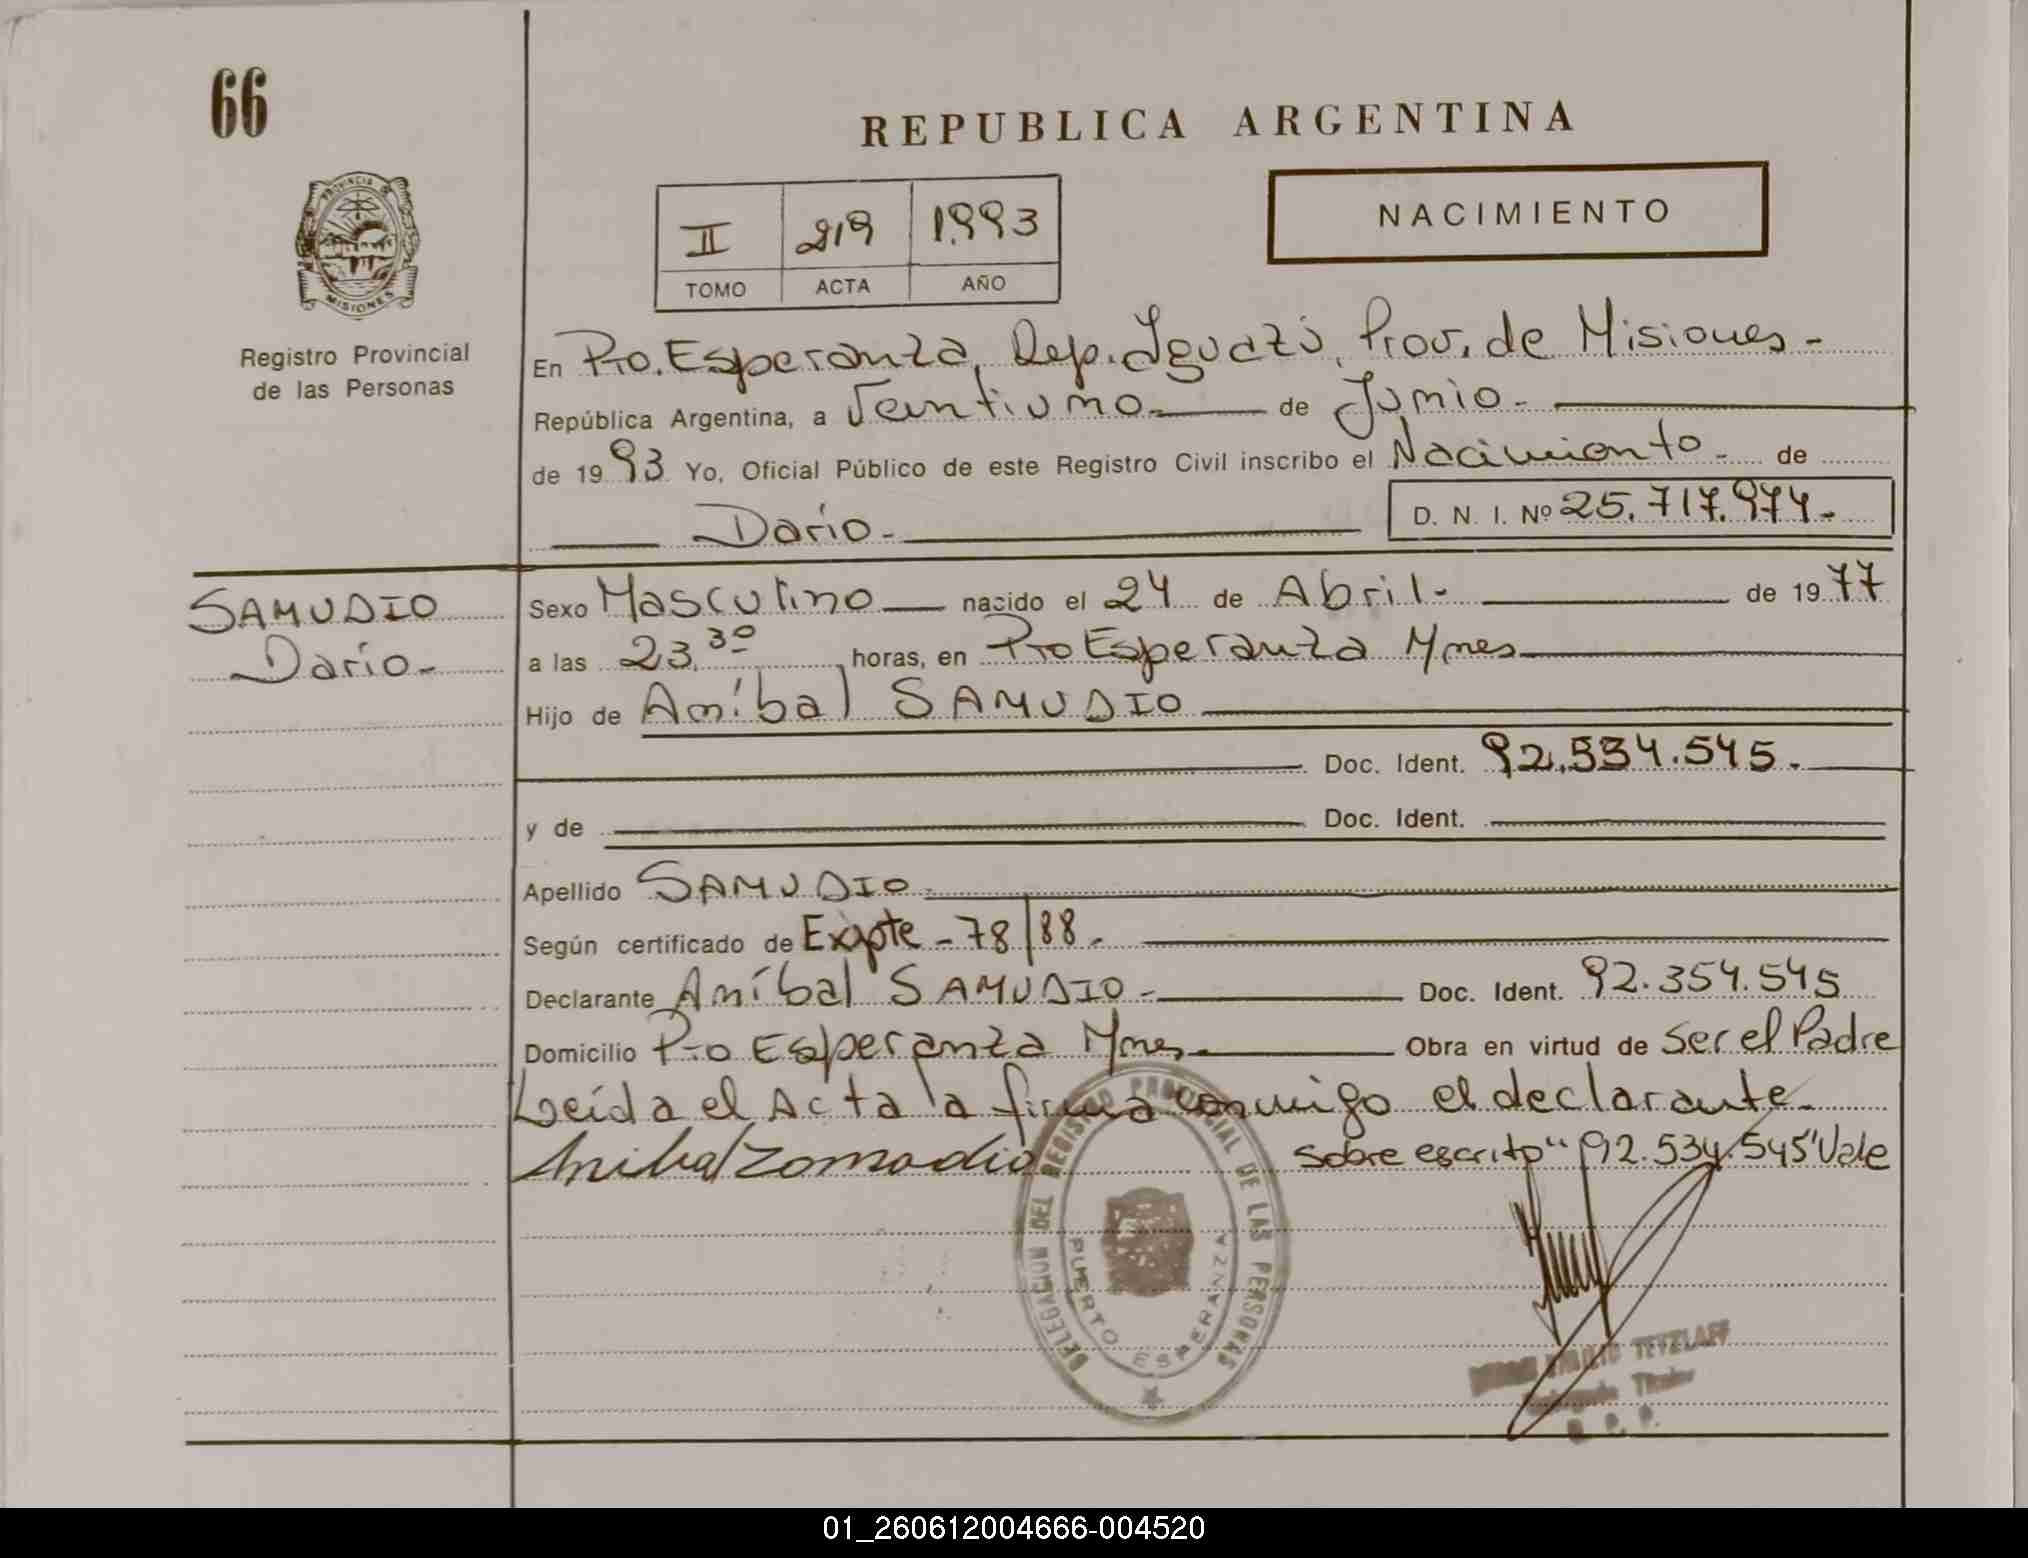 66
REPUBLICA ARGENTINA
PROVINCIA DE
MISIONES
Registro Provincial
de las Personas
II 219 1993
TOMO ACTA AÑO
NACIMIENTO
En Pto. Esperanza, Dep. Iguazú, Prov. de Misiones-
República Argentina, a Veintiuno- de Junio-
de 1993 Yo, Oficial Público de este Registro Civil inscribo el Nacimiento- de
Darío- D. N. I. Nº 25.717.974-
SAMUDIO
Darío-
Sexo Masculino nacido el 24 de Abril- de 1977
a las 23.30 horas, en Pto Esperanza Mnes
Hijo de Aníbal SAMUDIO
Doc. Ident. 92.534.545.
y de Doc. Ident.
Apellido SAMUDIO-
Según certificado de Expte-78/88.
Declarante Aníbal SAMUDIO- Doc. Ident. 92.354.545
Domicilio Pto Esperanza Mnes- Obra en virtud de Ser el Padre
Leída el Acta la firma conmigo el declarante-
Anibal Zomodio Sobre escrito "92.534.545" Vale
DELEGACION DEL REGISTRO PROVINCIAL DE LAS PERSONAS
PUERTO ESPERANZA
TETZLAFF
Titular
R. P. P.
01_260612004666-004520